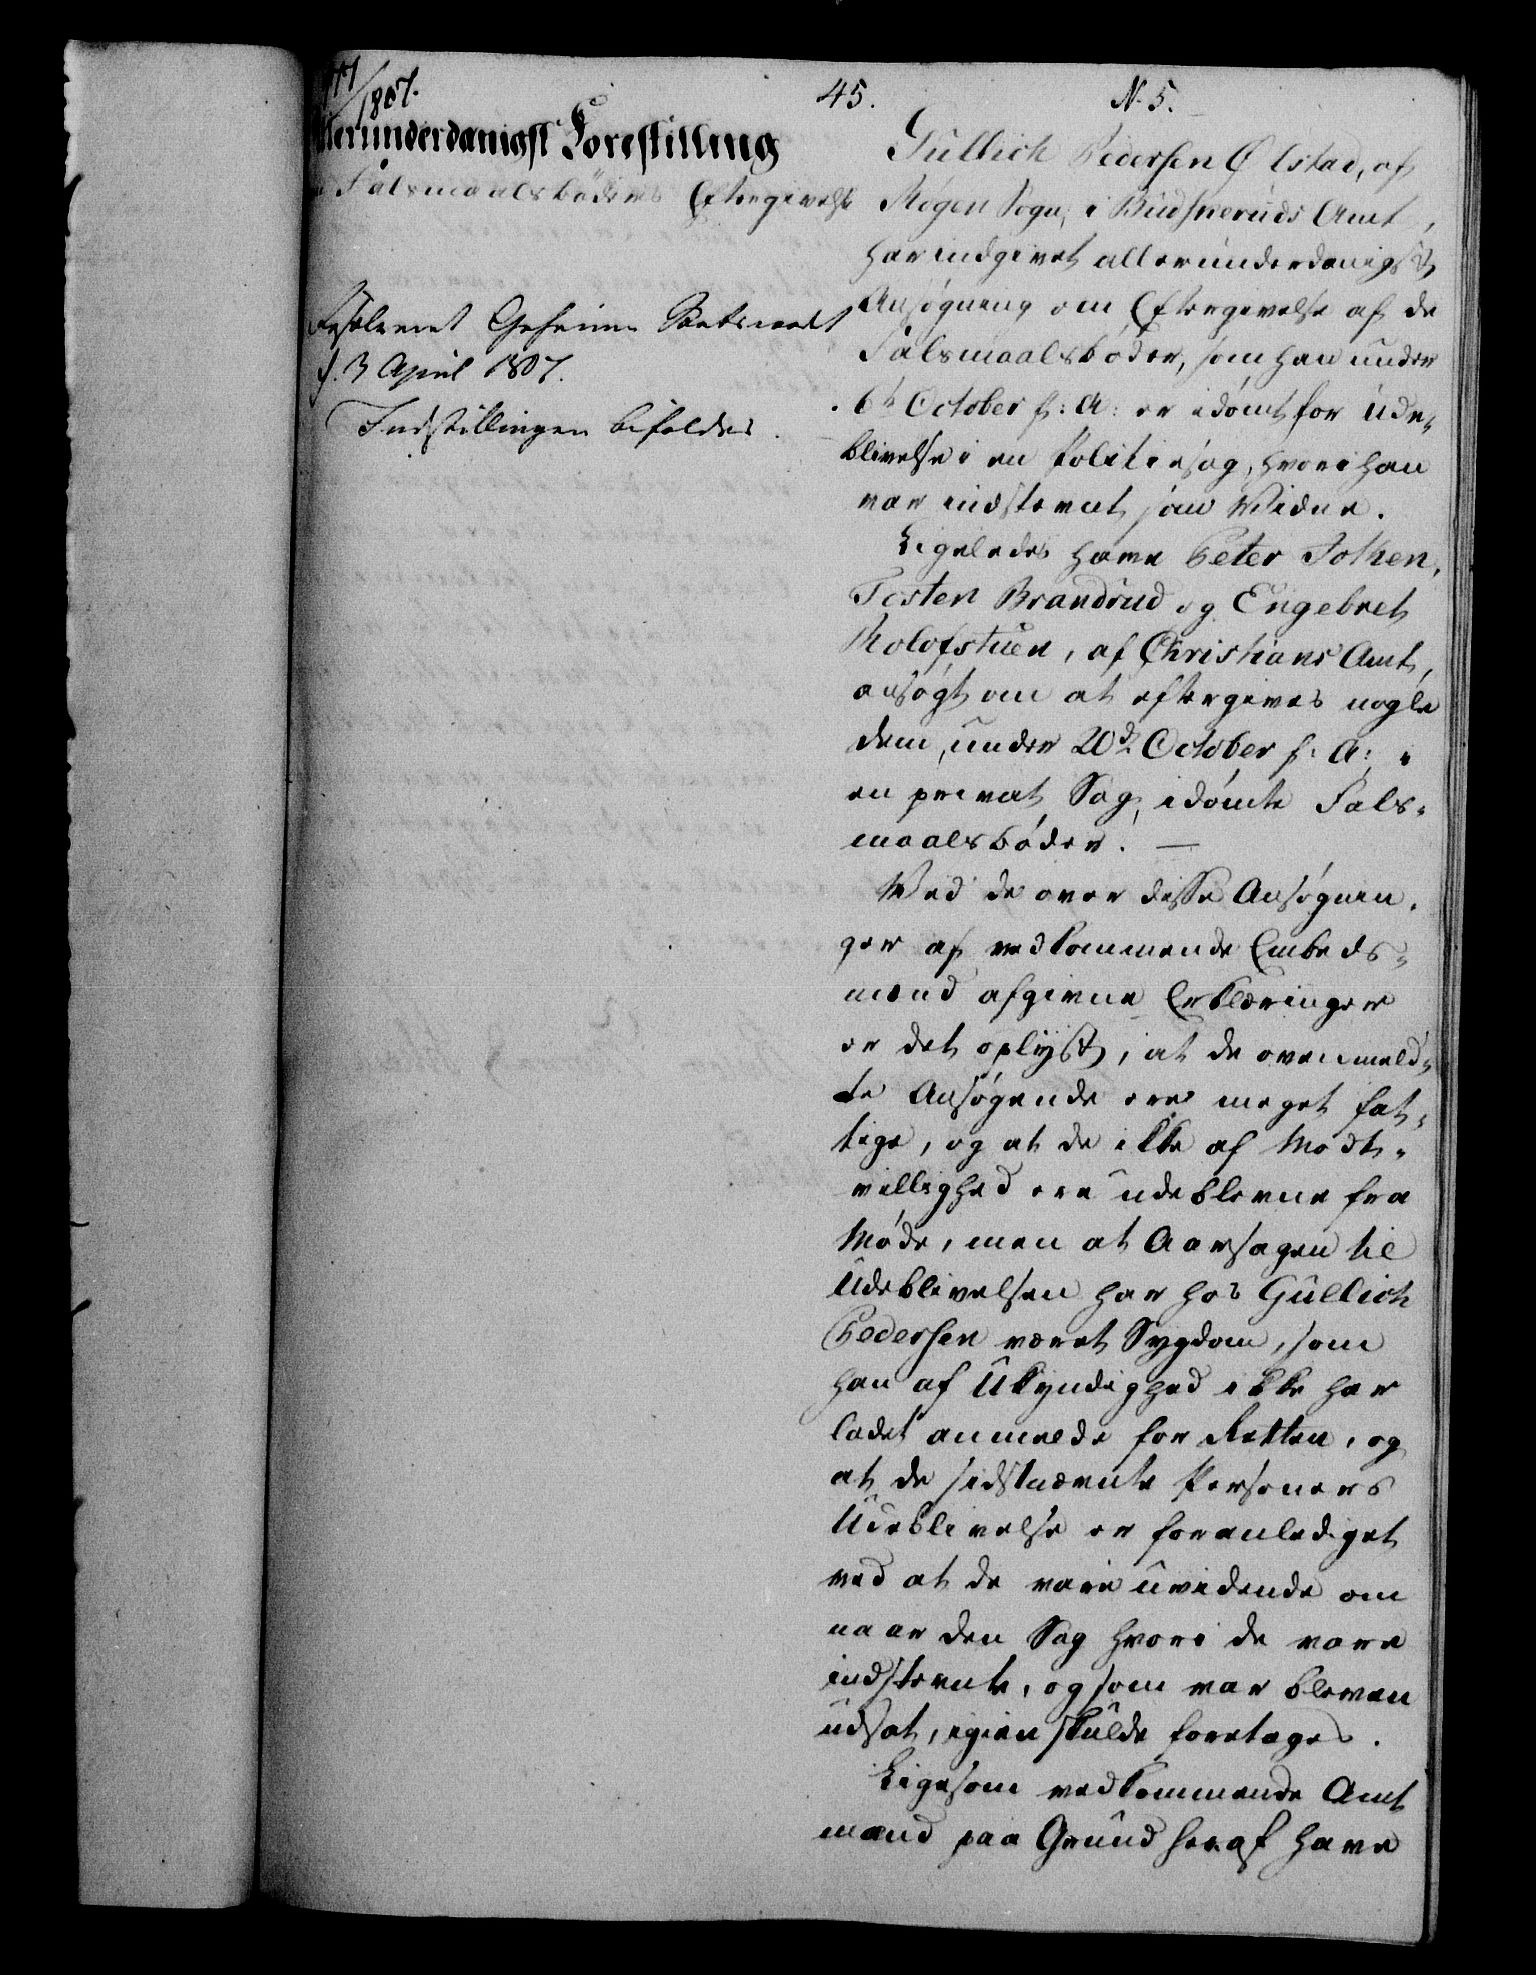 /1807.
45.
N. 5.
Allerunderdanigst Forestilling
Falsmaalsbøders Eftergivelse
Resolveret Geheime Statsraadt
d. 3 April 1807.
Indstillingen bifaldes.
Gullich Pedersen Ølstad, af
Sogn, i Budskeruds Amt,
har indgivet allerunderdanigst
Ansøgning om Eftergivelse af de
Falsmaalsbøder, som han under
6t October f: A: er idømt for Ude-
blivelse i en Politiesag, hvori han
var indstevnt som Vidne.
Ligeledes have Peter Tolken,
Tosten Brandrud og Engebret
Rolofstuen, af Christians Amt,
ansøgt om at eftergives nogle
dem, under 20d October f: A: i
en privat Sag, idømte Fals-
maalsbøder. —
Ved de over disse Ansøgnin-
ger af vedkommende Embeds-
mænd afgivne Erklæringer
er det oplyst, at de ovenmeld-
te Ansøgende ere meget fat-
tige, og at de ikke af Modt-
villighed ere udeblevne fra
Møde, men at Aarsagen til
Udeblivelsen har hos Gullich
Pedersen været Sygdom, som
han af Ukyndighed ikke har
ladet anmelde for Retten, og
at de sidstnævnte Personers
Udeblivelse er foranlediget
ved at de vare uvidende om
naar den Sag hvori de vare
indstevnte, og som var bleven
udsat, igien skulde foretages.
Ligesom vedkommende Amt
mænd paa Grund heraf have